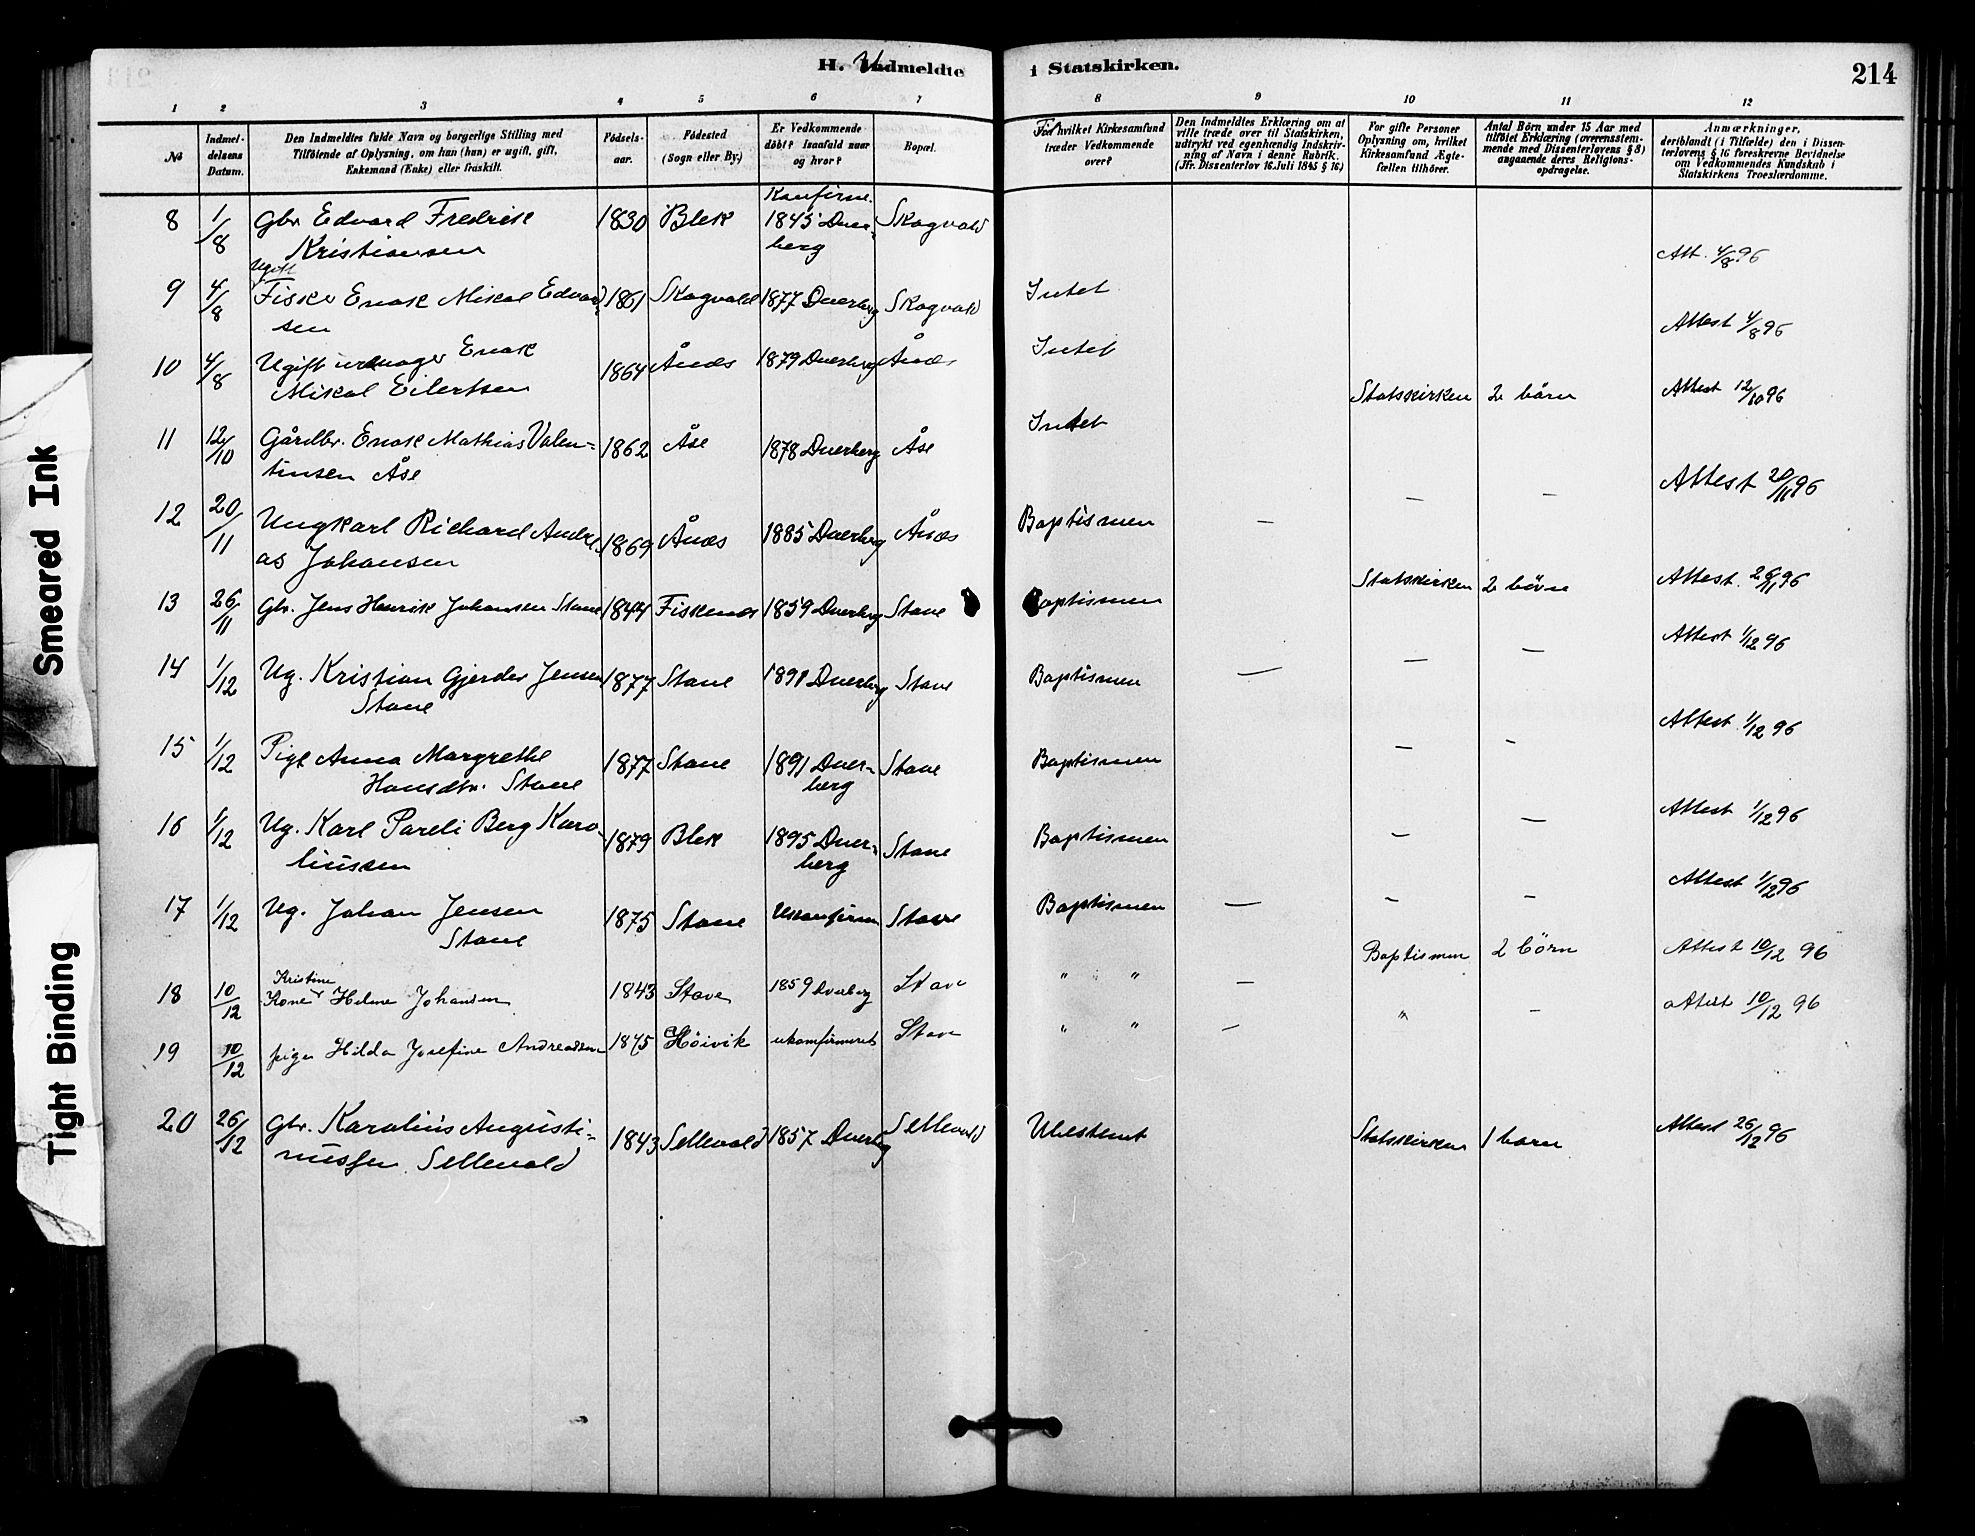 H. Udmeldte i Statskirken.
214
1 2 3 4 5 6 7 8 9 10 11 12
No
Indmel-
delsens
Datum.
Den Indmeldtes fulde Navn og borgerlige Stilling med
Tilföiende af Oplysning, om han (hun) er ugift, gift,
Enkemand (Enke) eller fraskilt.
Födsels-
aar.
Födested
(Sogn eller By.)
Er Vedkommende
döbt? Isaafald naar
og hvor?
Bopæl.
Til hvilket Kirkesamfund
træder Vedkommende
over?
Den Indmeldtes Erklæring om at
ville træde over til Statskirken,
udtrykt ved egenhændig Indskriv-
ning af Navn i denne Rubrik.
(Jfr. Dissenterlov 16. Juli 1845 § 16.)
For gifte Personer
Oplysning om, hvilket
Kirkesamfund Ægte-
fællen tilhörer.
Antal Börn under 15 Aar med
tilföiet Erklæring (overensstem-
mende med Dissenterlovens § 8)
angaaende deres Religions-
opdragelse.
Anmærkninger,
deriblandt (i Tilfælde) den i Dissen-
terlovens § 16 foreskrevne Bevidnelse
om Vedkommendes Kundskab i
Statskirkens Troeslærdomme.
Konfirm.
8 1/8 Gbr. Edvard Fredrik 1830 Blek 1845 Dver- Skogvold
Kristiansen berg
Att. 4/8 96
Ugift
9 4/8 Fisker Enok Mikal Edvard- 1861 Skogvold 1877 Dverberg Skogvold Intet
sen
Attest 4/8 96
10 4/8 Ugift urmager Enok 1864 Ånes 1879 Dverberg Ånes Intet
Mikal Eilertsen
Statskirken 2 börn Attest 12/10 96
11 12/10 Gårdbr. Enok Mathias Valen- 1862 Åse 1878 Dverberg Åse Intet
tinsen Åse
— — Attest 20/11 96
12 20/11 Ungkarl Richard Andre- 1869 Ånes 1885 Dverberg Ånes Baptismen —
as Johansen
Statskirken 2 börn Attest. 26/11 96
13 26/11 Gbr. Jens Henrik Johansen Stave 1844 Fiskenes 1859 Dverberg Stave Baptismen
— — Attest 1/12 96
14 1/12 Ug. Kristian Gjerder Jensen 1877 Stave 1891 Dverberg Stave Baptismen —
Stave
— — Attest 1/12 96
15 1/12 Pige Anna Margrethe 1877 Stave 1891 Dver- Stave Baptismen
Hansdtr. Stave berg
— — Attest 1/12 96
16 1/12 Ug. Karl Pareli Berg Karo- 1879 Blek 1895 Dver- Stave Baptismen
liussen berg
Attest 1/12 96
17 1/12 Ug. Johan Jensen 1875 Stave Ukonfirm Stave Baptismen — — —
Stave
Baptismen 2 börn Attest 10/12 96
Kristine
18 10/12 Kone Helene Johansen 1843 Stave 1859 Dverberg Stave " " —
" — Attest 10/12 96
19 10/12 pige Hilda Josefine Andreassen 1875 Höivik ukonfirmeret Stave " " —
20 26/12 Gbr. Karolius Augusti- 1843 Sellevold 1857 Dverberg Sellevold Ubestemt Statskirken 1 barn Attest 26/12 96
nussen Sellevold
Smeared Ink
Tight Binding